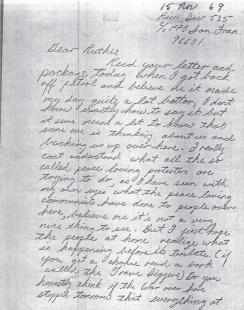 15 Nov 69
Riv Div 535
℅ FPO San Fran
96601
Dear Ruthie
Recd your letter and
package today when I got back
off patrol and believe me it made
my day quite a lot better, I don't
know exactly how to say it but
it sure mean a lot to know that
some one is thinking about us and
backing us up over here. I really
cant understand what all the so
called, peace loving protesters are
trying to do as I have seen with
my own eyes what the peace loving
communists have done to people over
here, believe me it's not a very
nice thing to see. But I just hope
the people at home realize what
is happening before its to late. (if
you get a chance read a book
called the Grave Diggers) Do you
honestly think if the war over here
stopped tomorrow that everything at